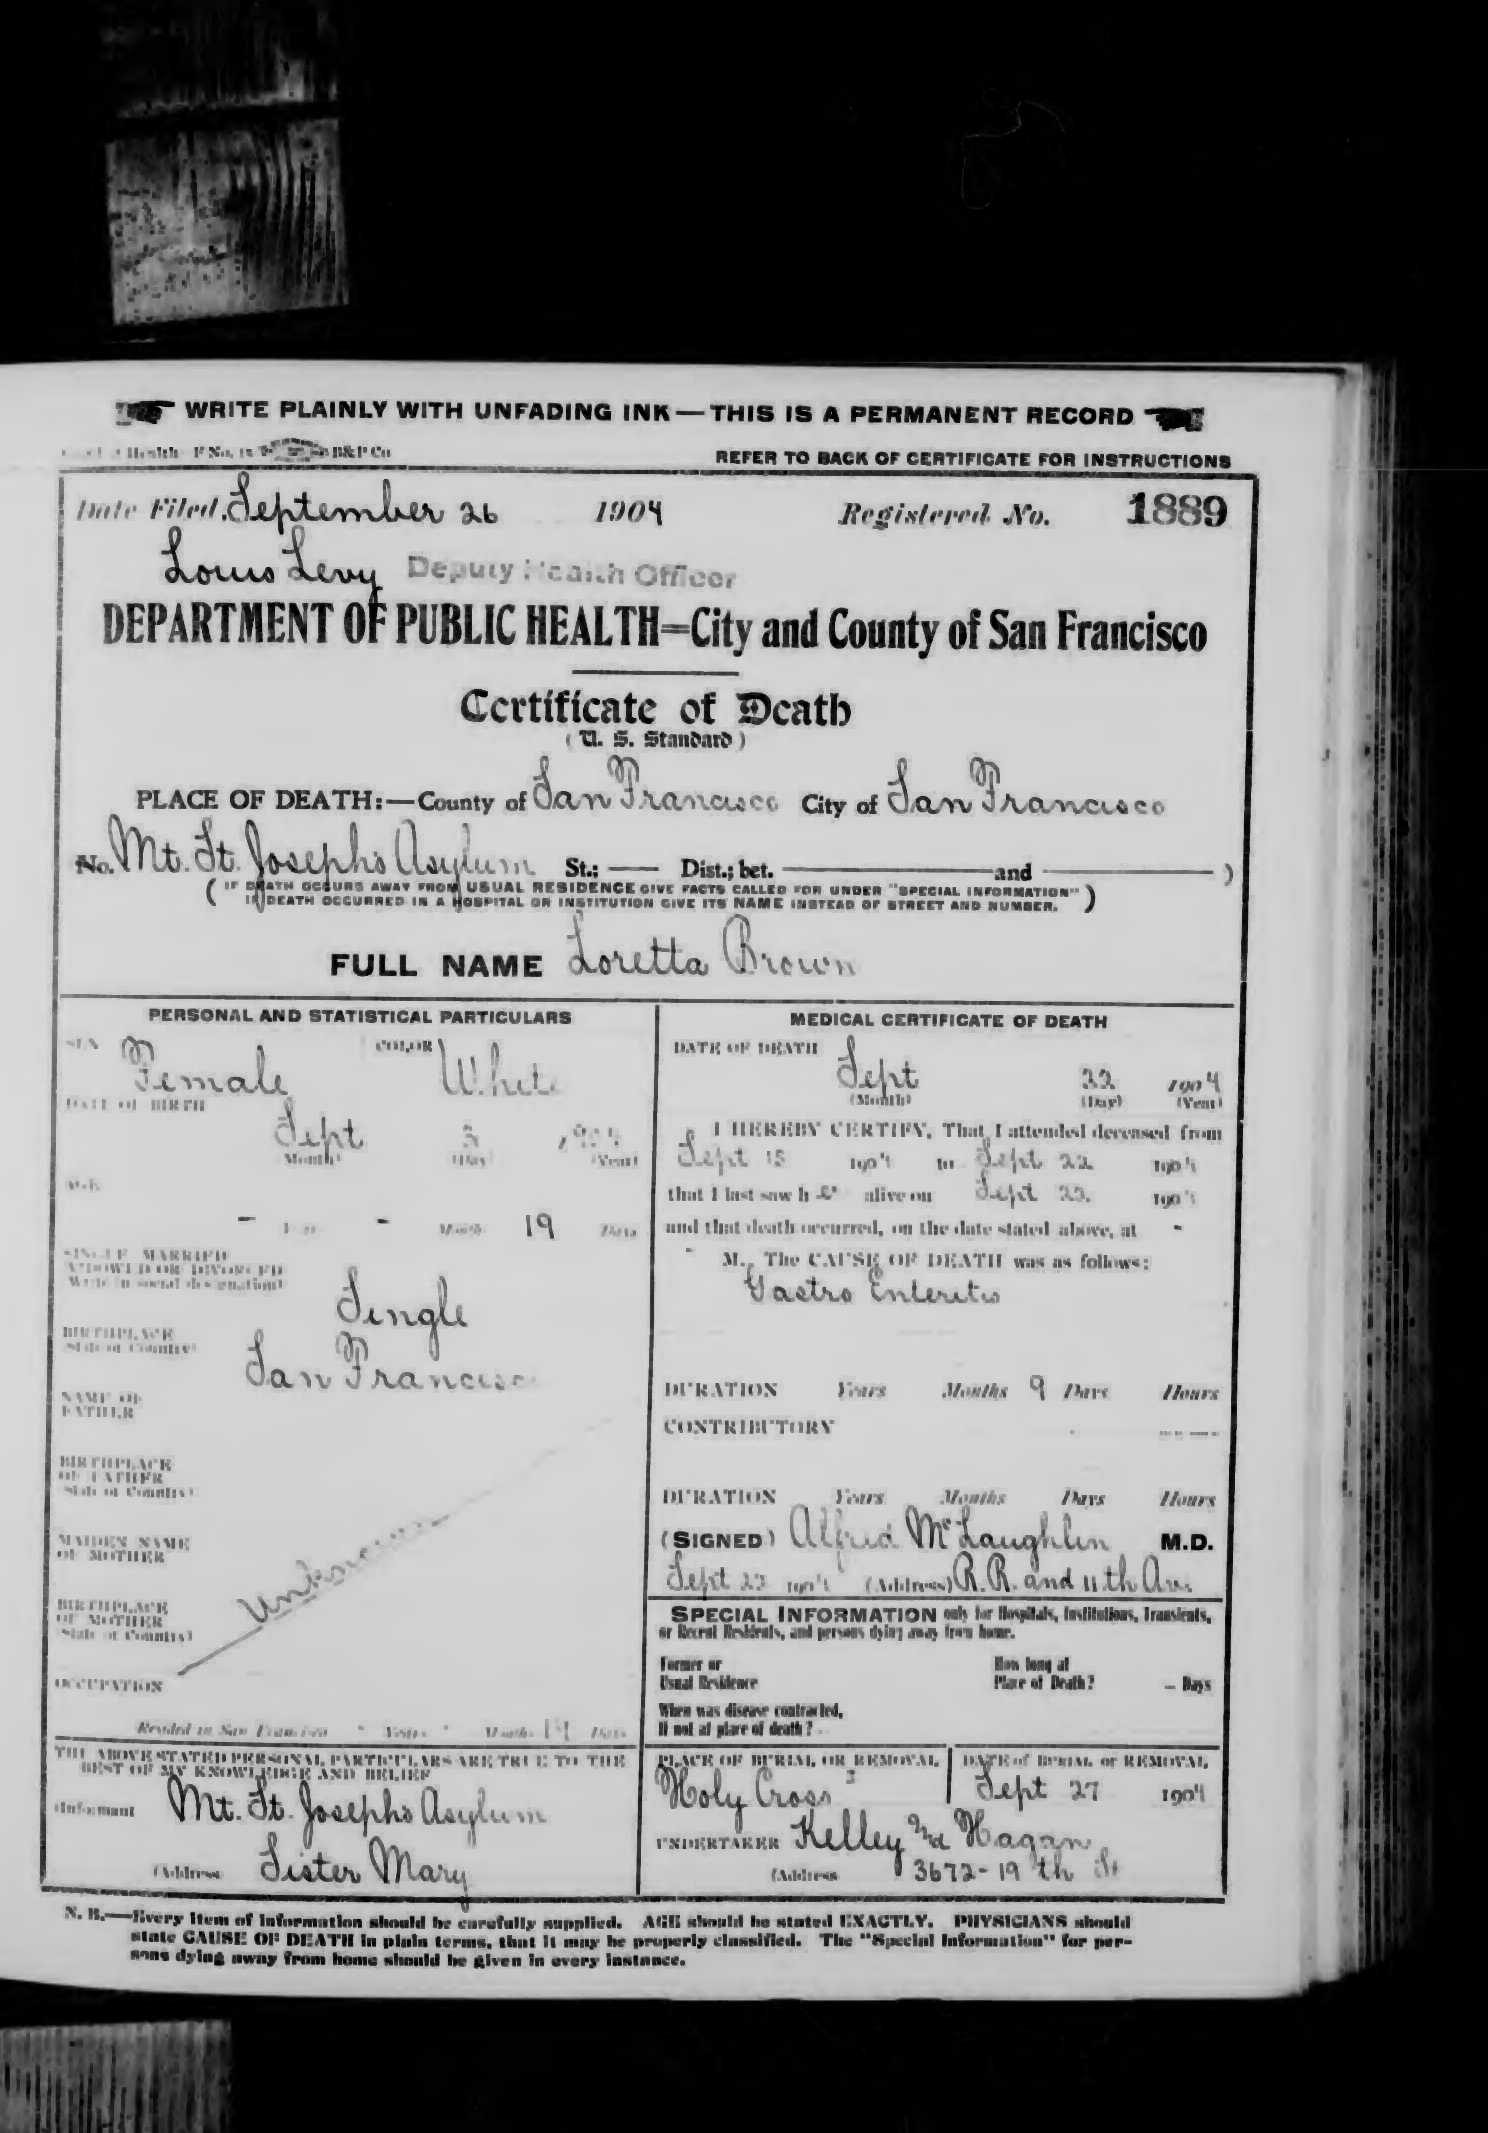 WRITE PLAINLY WITH UNFADING INK — THIS IS A PERMANENT RECORD
Health F No. B&P Co
REFER TO BACK OF CERTIFICATE FOR INSTRUCTIONS
Date Filed, September 26 1904 Registered No. 1889
Louis Levy Deputy Health Officer
DEPARTMENT OF PUBLIC HEALTH=City and County of San Francisco
Certificate of Death
(U. S. Standard)
PLACE OF DEATH:—County of San Francisco City of San Francisco
No. Mt. St. Joseph's Asylum St.; —— Dist.; bet. —— and —— )
( IF DEATH OCCURS AWAY FROM USUAL RESIDENCE GIVE FACTS CALLED FOR UNDER "SPECIAL INFORMATION" )
( IF DEATH OCCURRED IN A HOSPITAL OR INSTITUTION GIVE ITS NAME INSTEAD OF STREET AND NUMBER. )
FULL NAME Loretta Brown
PERSONAL AND STATISTICAL PARTICULARS
SEX Female COLOR White
DATE OF BIRTH
Sept 3 1904
(Month) (Day) (Year)
AGE
- Years - Months 19 Days
SINGLE, MARRIED
WIDOWED OR DIVORCED
(Write in social designation)
Single
BIRTHPLACE
(State or Country)
San Francisco
NAME OF
FATHER
BIRTHPLACE
OF FATHER
(State or Country)
MAIDEN NAME
OF MOTHER
Unknown
BIRTHPLACE
OF MOTHER
(State or Country)
OCCUPATION
Resided in San Francisco - Years - Months 19 Days
THE ABOVE STATED PERSONAL PARTICULARS ARE TRUE TO THE
BEST OF MY KNOWLEDGE AND BELIEF
(Informant Mt. St. Joseph's Asylum
(Address Sister Mary
MEDICAL CERTIFICATE OF DEATH
DATE OF DEATH
Sept 22 1904
(Month) (Day) (Year)
I HEREBY CERTIFY, That I attended deceased from
Sept 15 1904 to Sept 22 1904
that I last saw h er alive on Sept 22. 1904
and that death occurred, on the date stated above, at -
- M. The CAUSE OF DEATH was as follows:
Gastro Enteritis
DURATION Years Months 9 Days Hours
CONTRIBUTORY
DURATION Years Months Days Hours
(SIGNED) Alfred McLaughlin M.D.
Sept 23 1904 (Address) R.R. and 11th Av.
SPECIAL INFORMATION only for Hospitals, Institutions, Transients,
or Recent Residents, and persons dying away from home.
Former or How long at
Usual Residence Place of Death? - Days
When was disease contracted,
If not at place of death?
PLACE OF BURIAL OR REMOVAL DATE of BURIAL or REMOVAL
Holy Cross Sept 27 1904
UNDERTAKER Kelley and Hagan
(Address 3672-19th St
N. B.—Every item of information should be carefully supplied. AGE should be stated EXACTLY. PHYSICIANS should
state CAUSE OF DEATH in plain terms, that it may be properly classified. The "Special Information" for per-
sons dying away from home should be given in every instance.